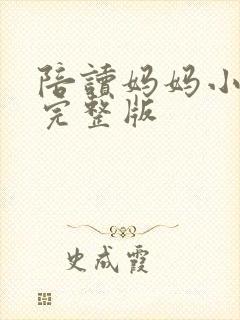 陪讀妈妈小
完整版
史成霞